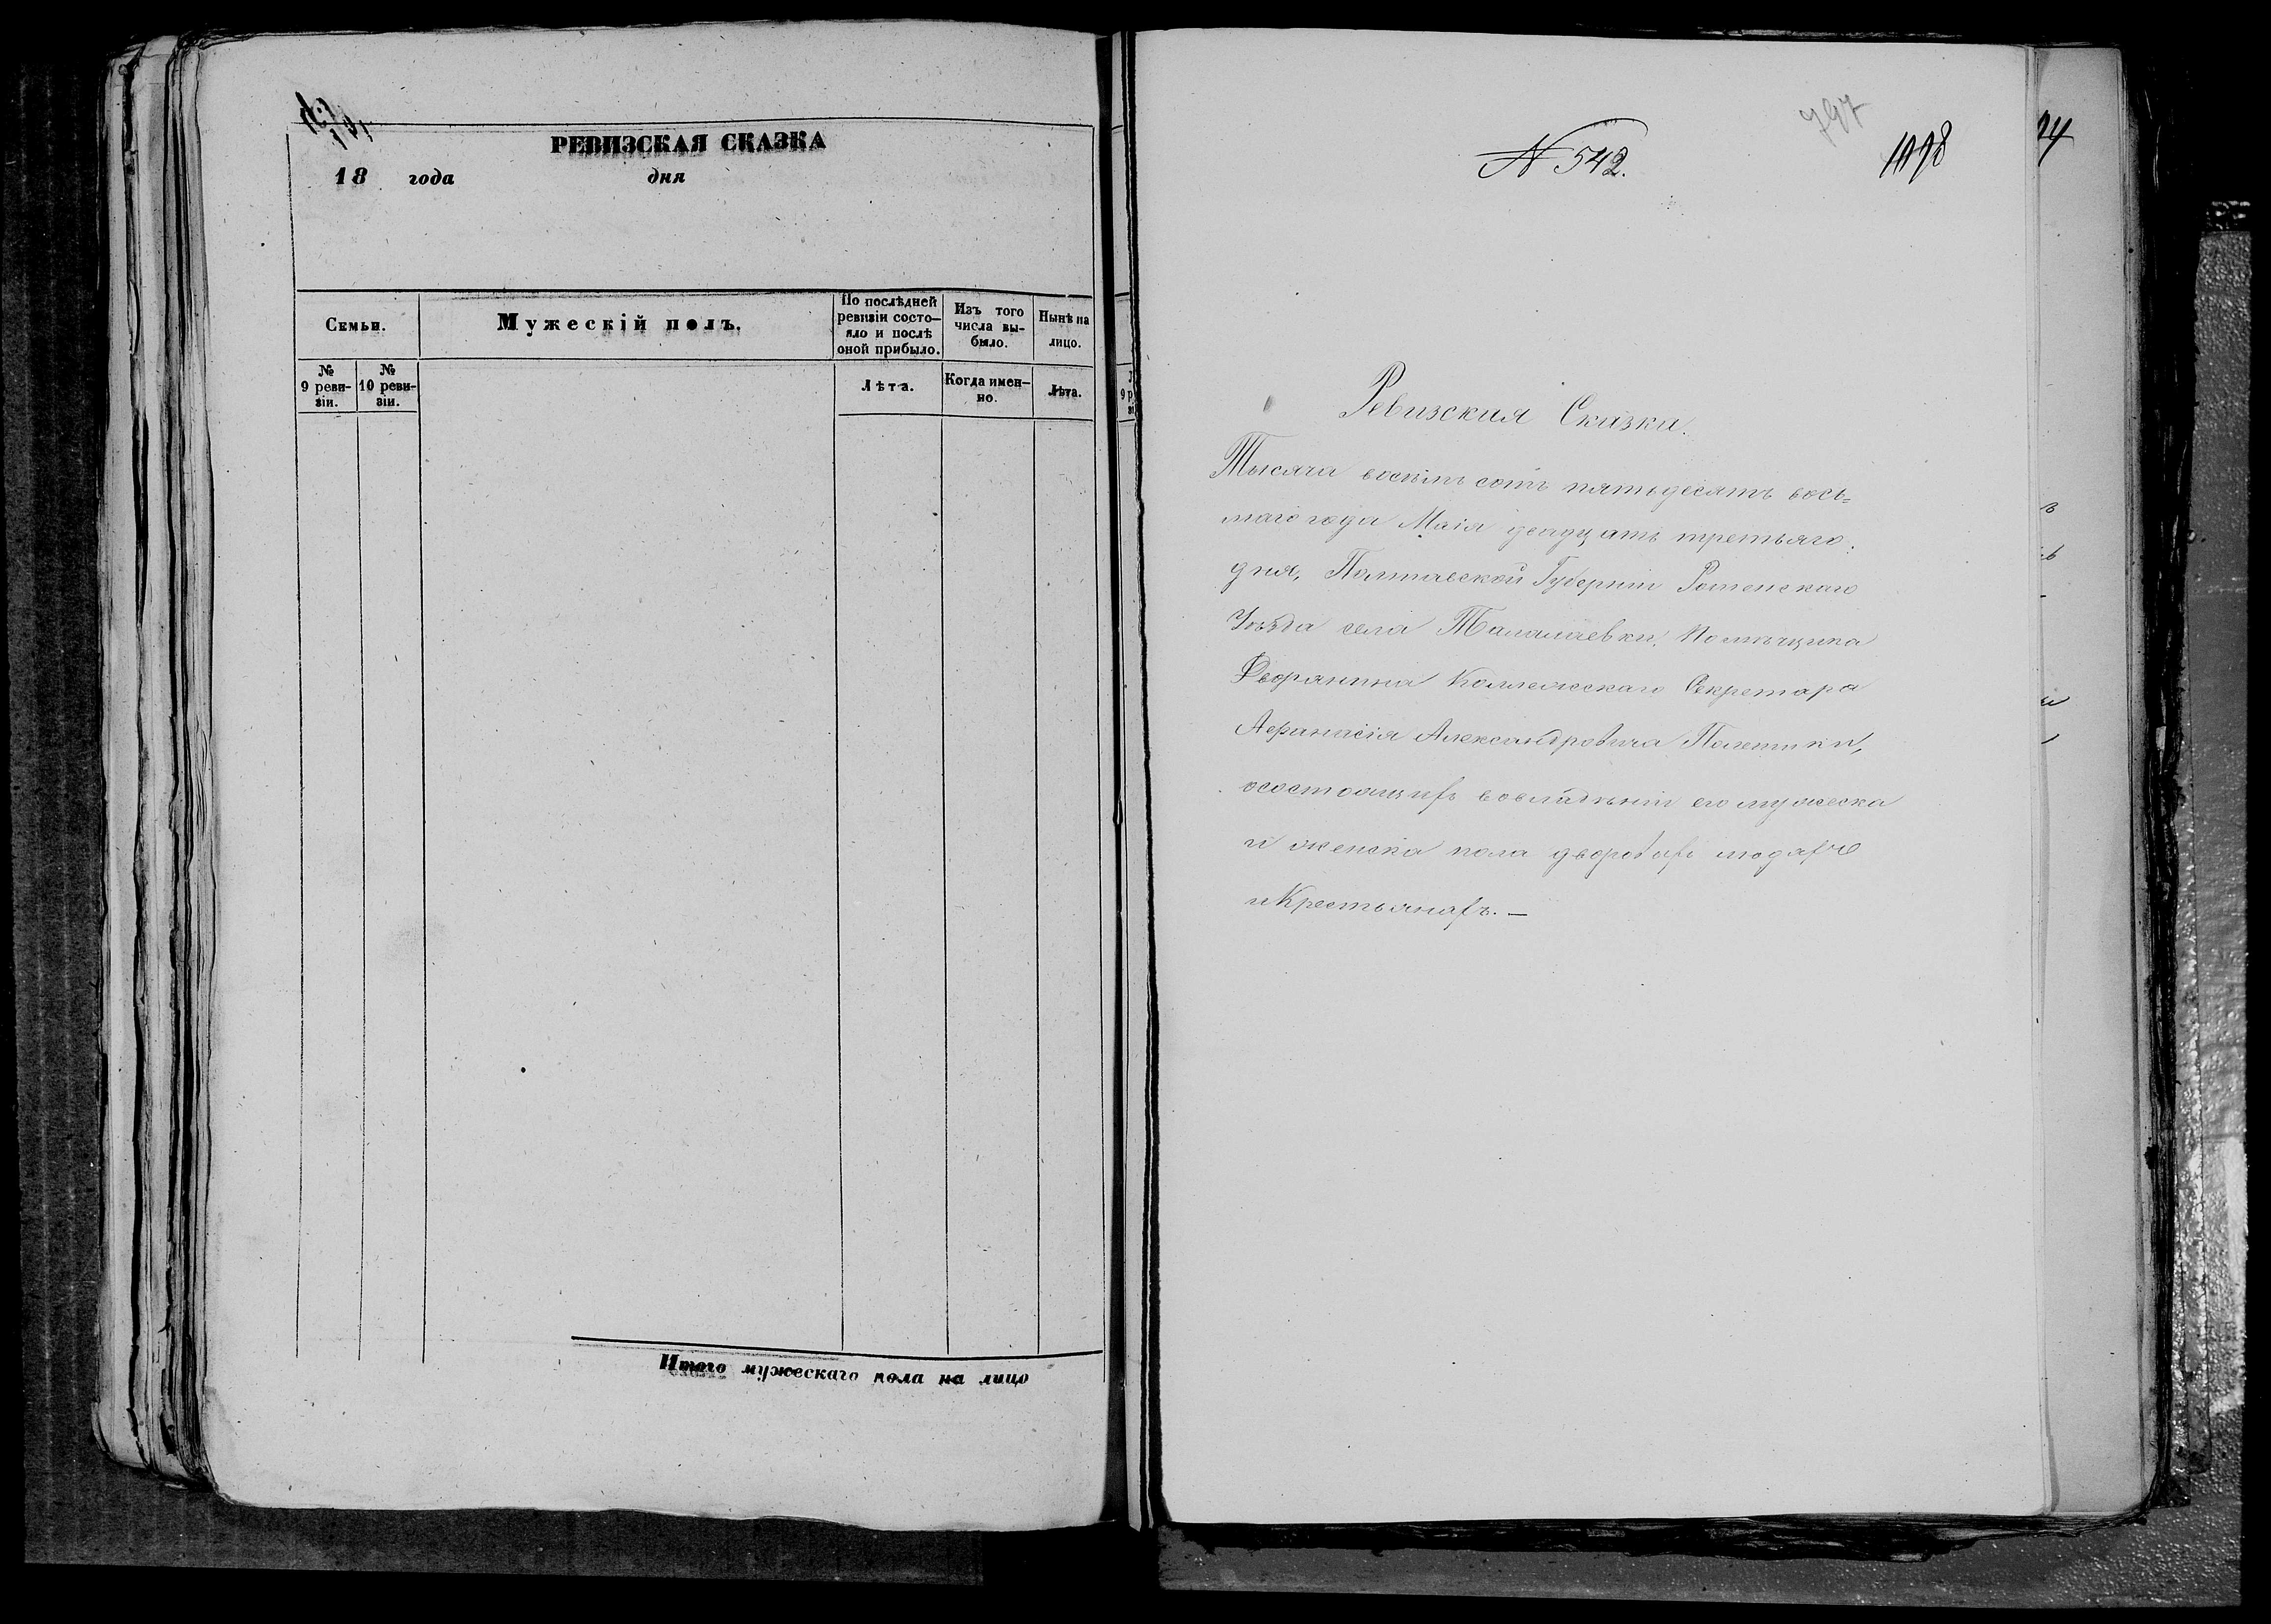 РЕВИЗСКАЯ СКАЗКА
18 года дня
Семьи.
Мужескій полъ.
По послѣдней
ревизіи состо-
яло и послѣ
оной прибыло.
Изъ того
числа вы-
было.
Нынѣ на
лицо.
№
9 реви-
зіи.
№
10 реви-
зіи.
Лѣта.
Когда имен-
но.
Лѣта.
Итого мужескаго пола на лицо
N 542.
Ревизская Сказка.
Тысяча восѣмъ сотъ пятьдесятъ вось=
маго года Маія двадцать третьяго
дня, Полтавской Губерніи Роменскаго
Уѣзда села Талалаевки, Помѣщика
Дворянина Коллежскаго Секретаря
Афанасія Александровича Полетики,
осостоящихъ вовладѣніи его мужеска
и женска пола дворовыхъ людяхъ
иКрестьянахъ. —